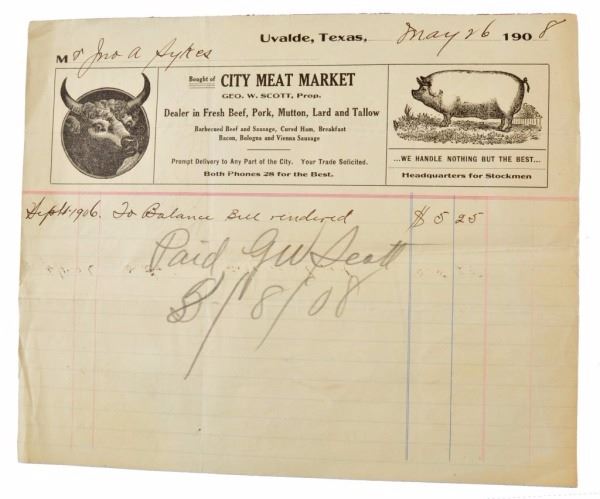 Uvalde, Texas, May 26 1908
Mr Jno A Sykes
Bought of CITY MEAT MARKET
GEO. W. SCOTT, Prop.
Dealer in Fresh Beef, Pork, Mutton, Lard and Tallow
Barbecued Beef and Sausage, Cured Ham, Breakfast
Bacon, Bologna and Vienna Sausage
Prompt Delivery to Any Part of the City. Your Trade Solicited.
Both Phones 28 for the Best.
...WE HANDLE NOTHING BUT THE BEST...
Headquarters for Stockmen
1906. To Balance Bill rendered $5 25
Paid GW Scott
/8/08